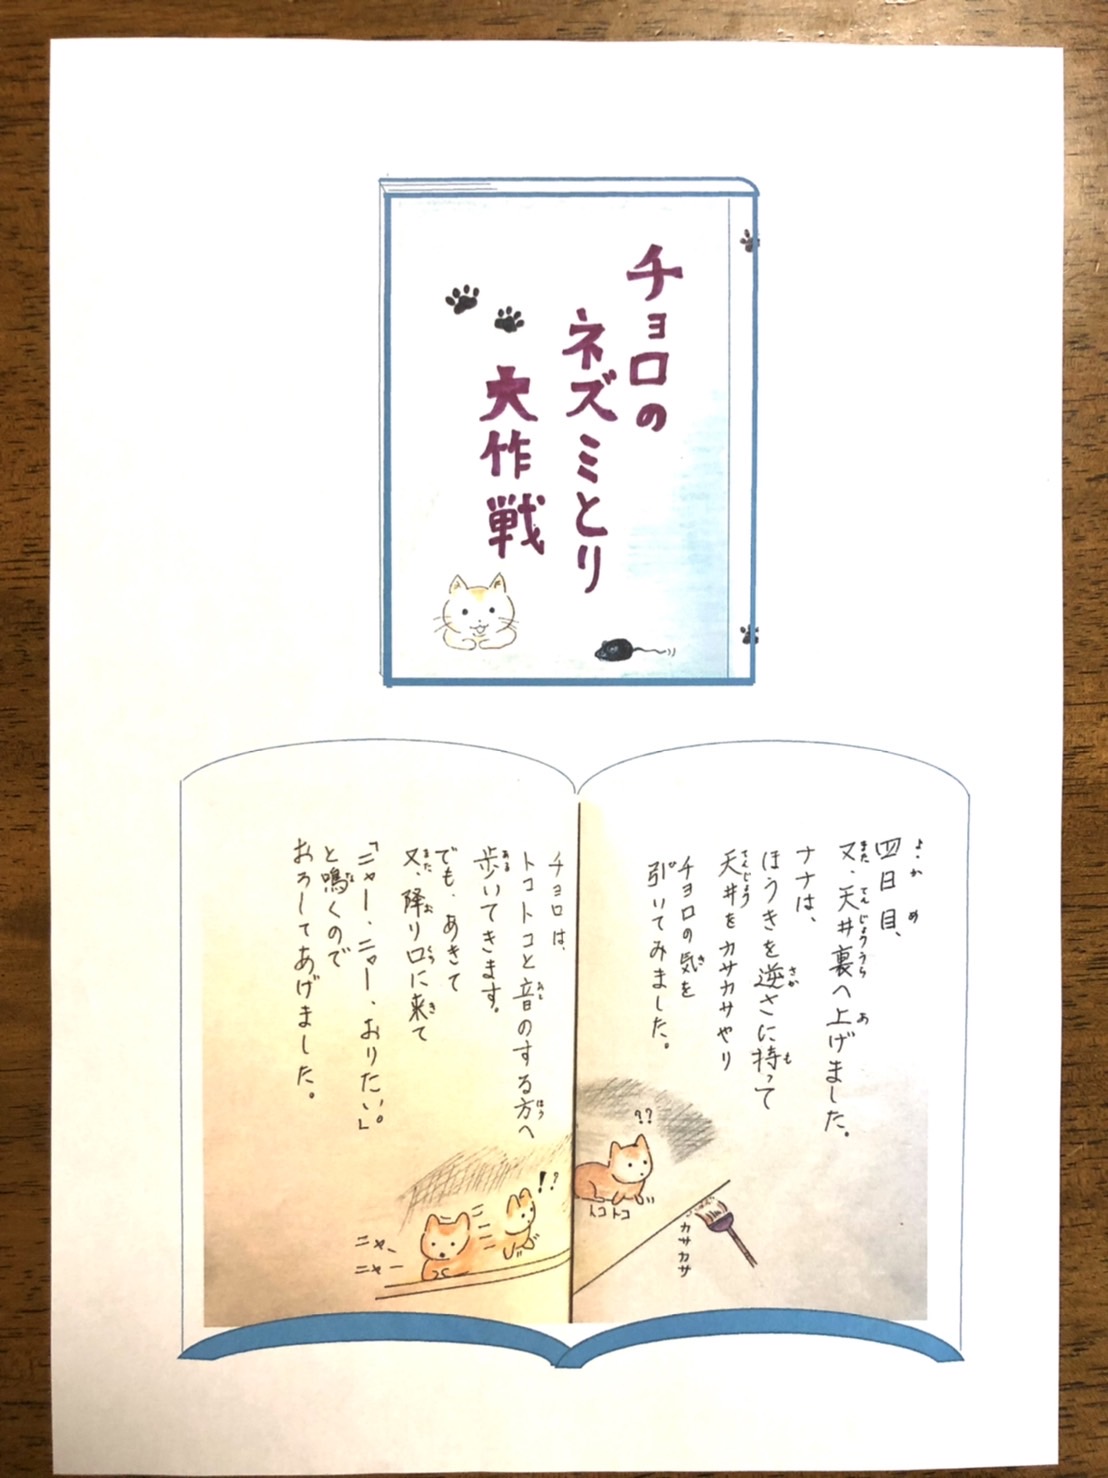 チョロの
ネズミとり
大作戦
四日目、
又、天井裏へ上げました。
ナナは、
ほうきを逆さに持って
天井をカサカサやり
チョロの気を
引いてみました。
??
トコトコ
カサカサ
チョロは、
トコトコと音のする方へ
歩いてきます。
でも、あきて
又、降り口に来て
「ニャー、ニャー、おりたい。」
と鳴くので
おろしてあげました。
!?
ニャー
ニャー